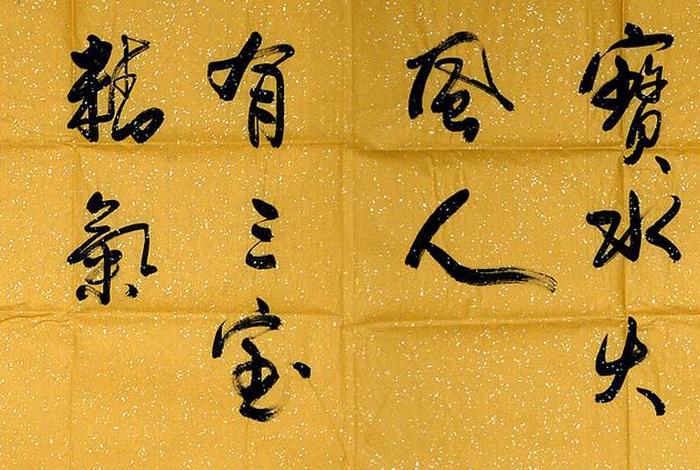 寶水火
風人
有三宝
精氣